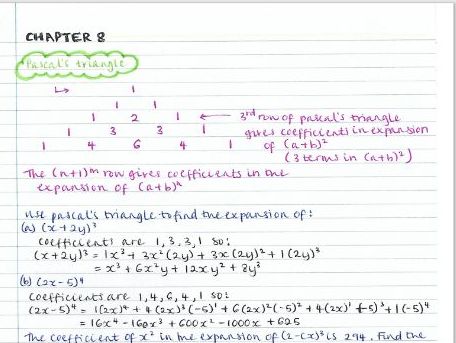 CHAPTER 8
Pascal's triangle
1
1 1
1 2 1 ← 3rd row of pascal's triangle
1 3 3 1 gives coefficients in expansion
1 4 6 4 1 of (a+b)²
(3 terms in (a+b)²)
The (n+1)th row gives coefficients in the
expansion of (a+b)ⁿ
Use pascal's triangle to find the expansion of:
(a) (x+2y)³
coefficients are 1, 3, 3, 1 so:
(x+2y)³ = 1x³ + 3x²(2y) + 3x(2y)² + 1(2y)³
= x³ + 6x²y + 12xy² + 8y³
(b) (2x-5)⁴
coefficients are 1, 4, 6, 4, 1 so:
(2x-5)⁴ = 1(2x)⁴ + 4(2x)³(-5)¹ + 6(2x)²(-5)² + 4(2x)¹(-5)³ + 1(-5)⁴
= 16x⁴ - 160x³ + 600x² - 1000x + 625
The coefficient of x² in the expansion of (2-cx)³ is 294. Find the